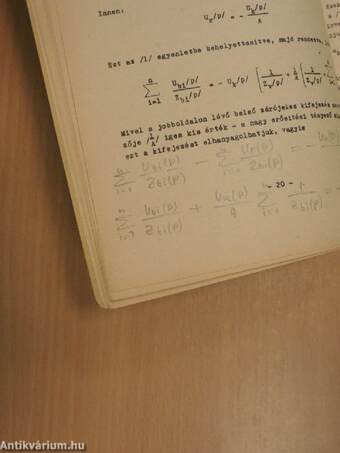 Innen: U_x/p/ = - U_k/p/ / A
Ezt az /1/ egyenletbe behelyettesitve, majd rendezve,
n ∑ i=1 U_bi/p/ / Z_bi/p/ = - U_k/p/ [ 1 / Z_v/p/ + 1/A ( 1 / Z_v/p/ +
Mivel a jobboldalon lévő belső zárójeles kifejezés
zője /1/A/ igen kis érték - a nagy erősitési tényező
ezt a kifejezést elhanyagolhatjuk, vagyis
n ∑ i=1 U_bi(p) / Z_bi(p) - ∑ U_x(p) / Z_bi(p) = -
- 20 -
n ∑ i=1 U_bi(p) / Z_bi(p) + U_k(p) / A n ∑ i=1 1 / Z_bi(p) =
Antikvárium.hu